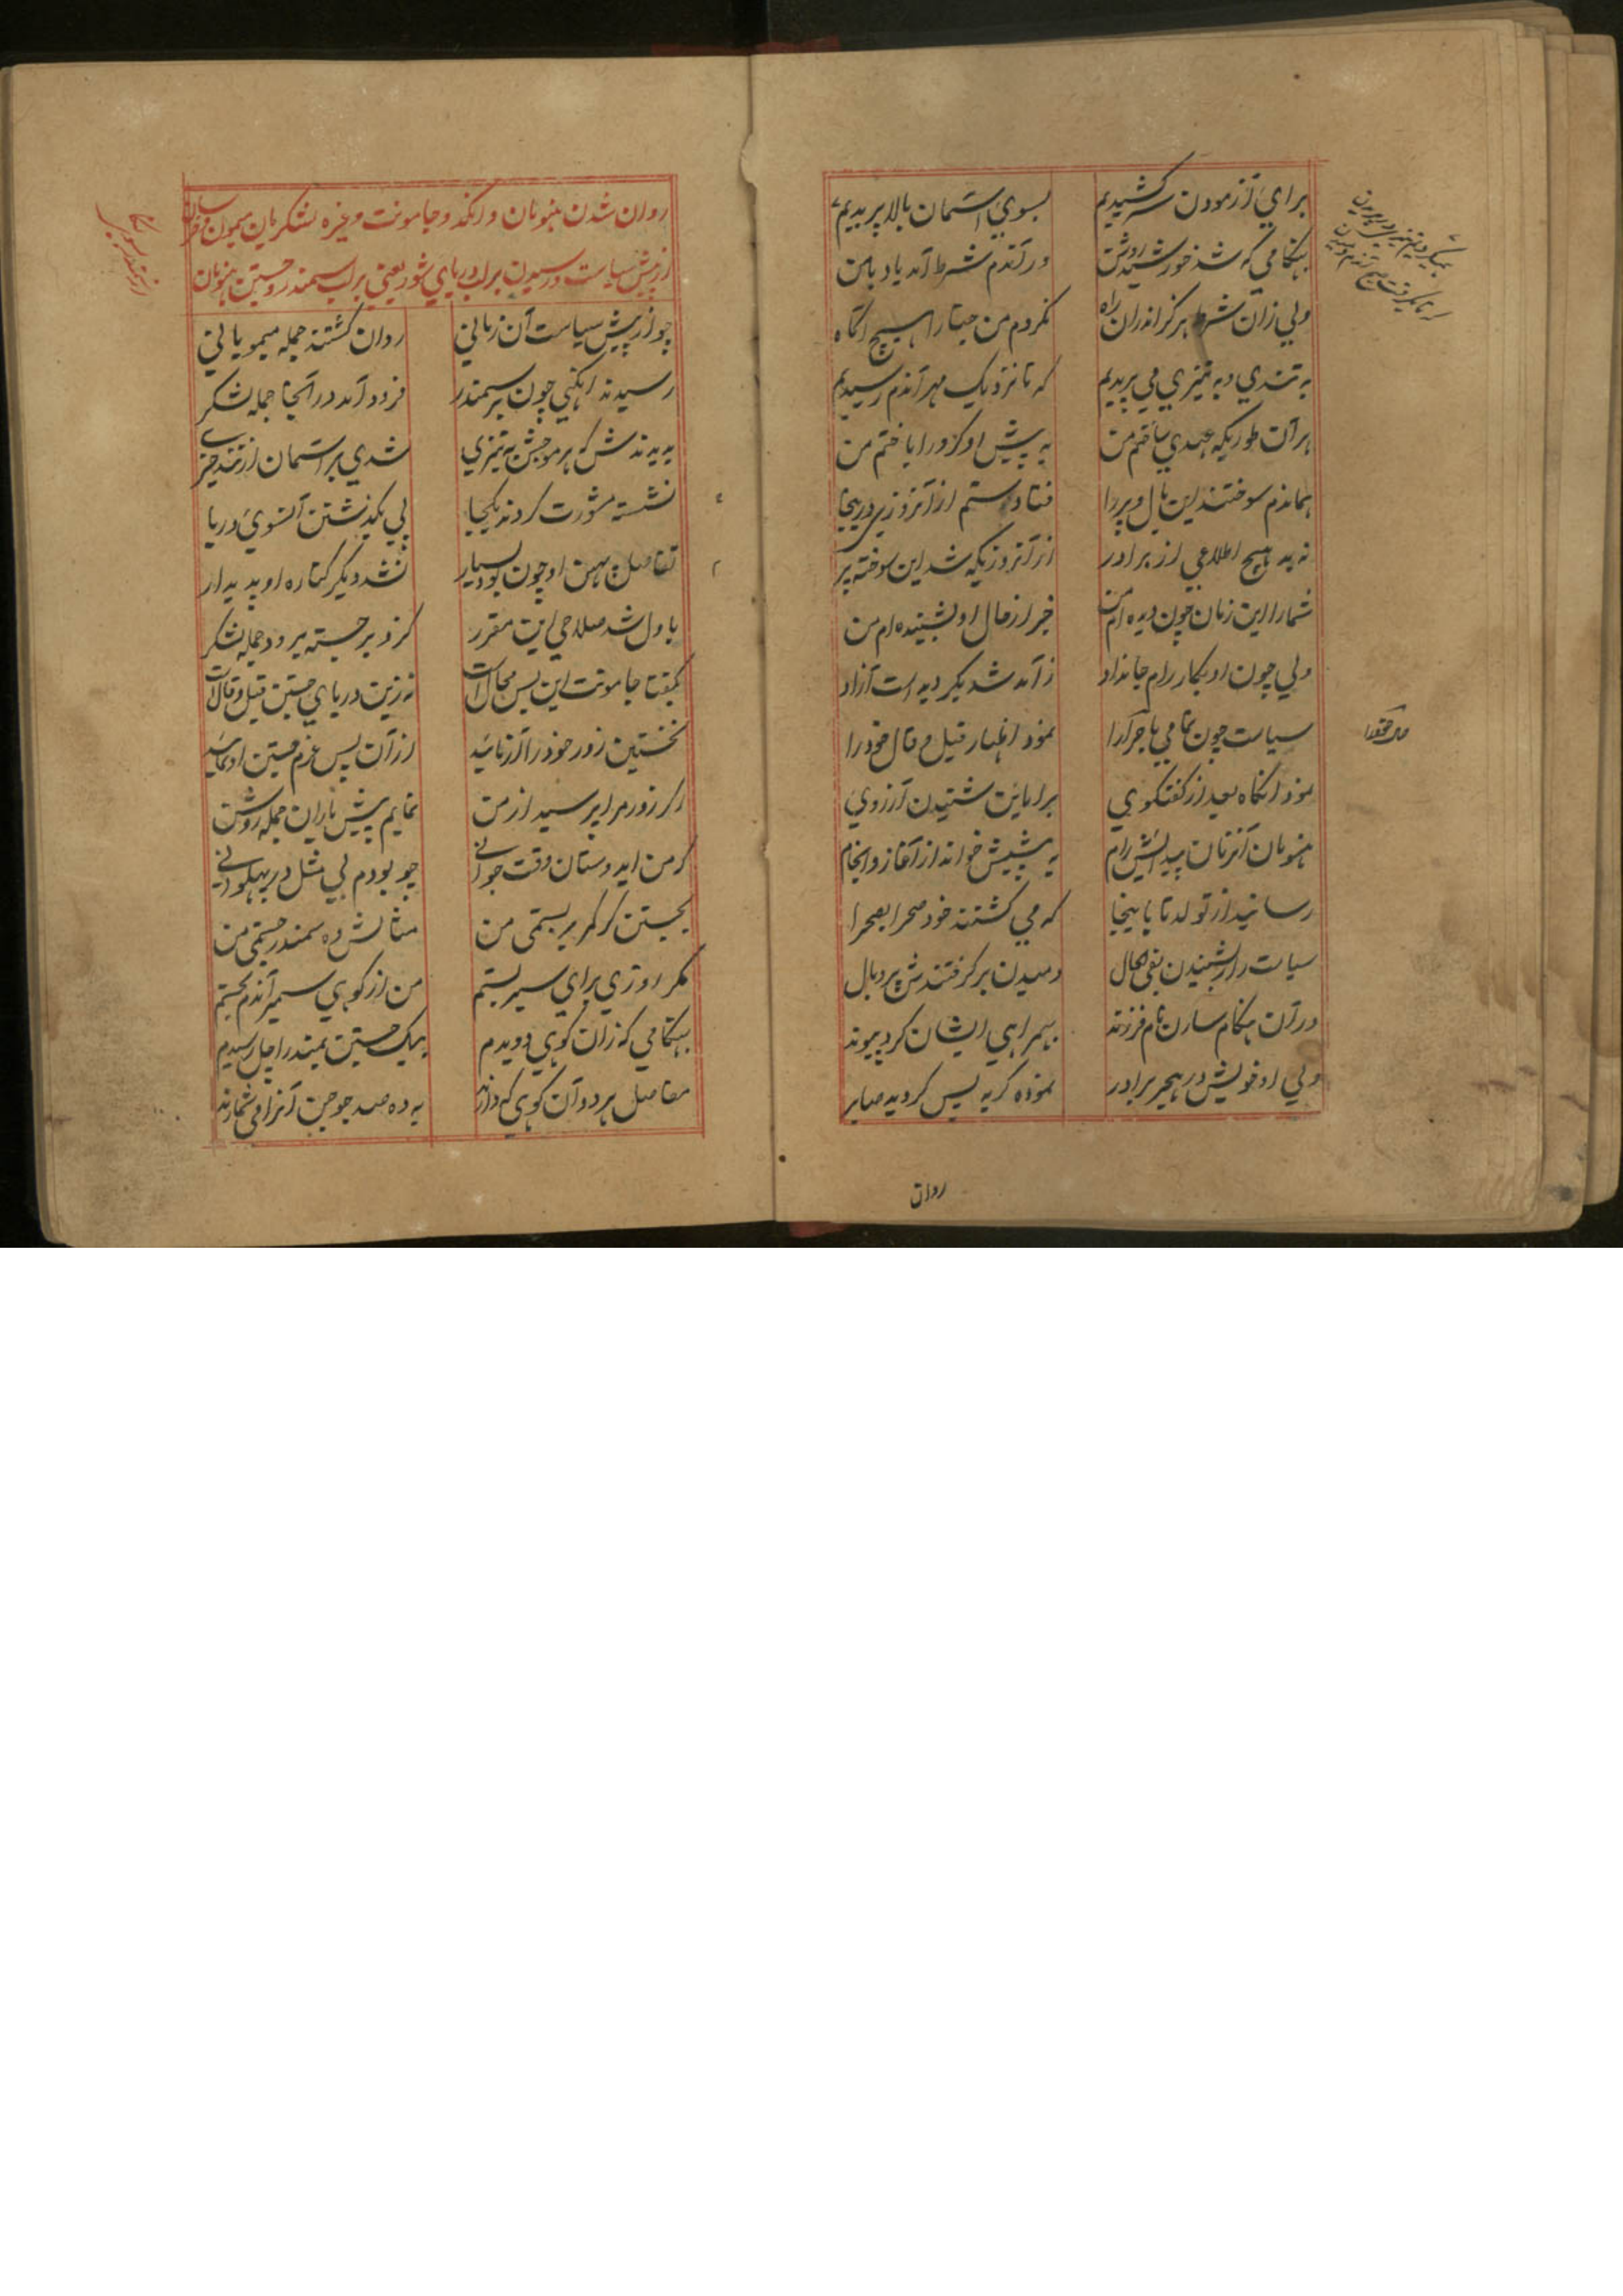 برای آزمودن سر کشیدیم بسوی آسمان بالا پریدیم
بهنگامی که شد خورشید روشن در آندم شرط آمد یاد با من
ولی زان شرط هرگز اندران راه نکردم من جتا را هیچ آگاه
به تندی و به تیزی می پریدیم که تا نزدیک مهر آندم رسیدیم
بر آن طوریکه عهدی ساختم من به پیش او کزو را باختم من
هماندم سوختند این بال و پر را فتادستم از آنروزی دریجا
نه بد هیچ اطلاعی از برادر از آنروزیکه شد این سوخته پر
شما را این زمان چون دیده ام من خبر از حال او بشنیده ام من
ولی چون او بکار رام جان داد ز آمد شد بگردیده است آزاد
سیاست چون تمامی ماجرا را نمود اظهار قیل و قال خود را
نمود آنگاه بعد از گفتگوی برایاین شنیدن آرزوی
هنومان آنزمان پیدایش رام به پیشش خواند از آغاز و انجام
رسانید از تولد تا باینجا که می گشتند خود صحرا بصحرا
سیاست را از شنیدن فی الحال دمیدن بر گرفتندش پر و بال
در آن هنگام سارن نام فرزند بهمراهی ایشان کرد پیوند
ولی او خویش در هجر برادر نموده گریه پس گردید صابر
روان
روان شدن هنومان و انگد و جامونت و غیره لشکریان میمون و خرسان
از پیش سیاست و رسیدن بر لب دریای شور یعنی بر لب سمندر و جستن هنومان
چو از پیش سیاست آن زمانی روان گشتند جمله میمویانی
رسیدند آنگهی چون بر سمندر فرود آمد در آنجا جمله لشکر
بدیدندش که هر موجش به تیزی شدی بر آسمان از تند خیزی
نشسته مشورت کردند یکجا پی بگذشتن آنسوی دریا
تفاصل پهن او چون بود بسیار نشد دیگر کناره او پدیدار
باول شد صلاحی این مقرر کزو برجسته برود جمله لشکر
بگفتا جامونت این بس محال است نه زین دریای جستن قیل و قال است
نخستین زور خود را آزماید از آن پس عزم جستن او نماید
اگر زور مرا پرسید از من نمایم پیش یاران جمله روشن
که من ای دوستان وقت جوانی چو بودم بی مثل در پهلوانی
بجستن گر کمر بربستمی من مثالش ده سمندر جستمی من
مگر روزی برای سیر بستم من از کوهی سمیر آندم بجستم
بهنگامی که زان کوهی دویدم بیک جستن بمندراچل رسیدم
مفاصل هر دو آن کوهی که دارند به ده صد جوجن آنرا می شمارند